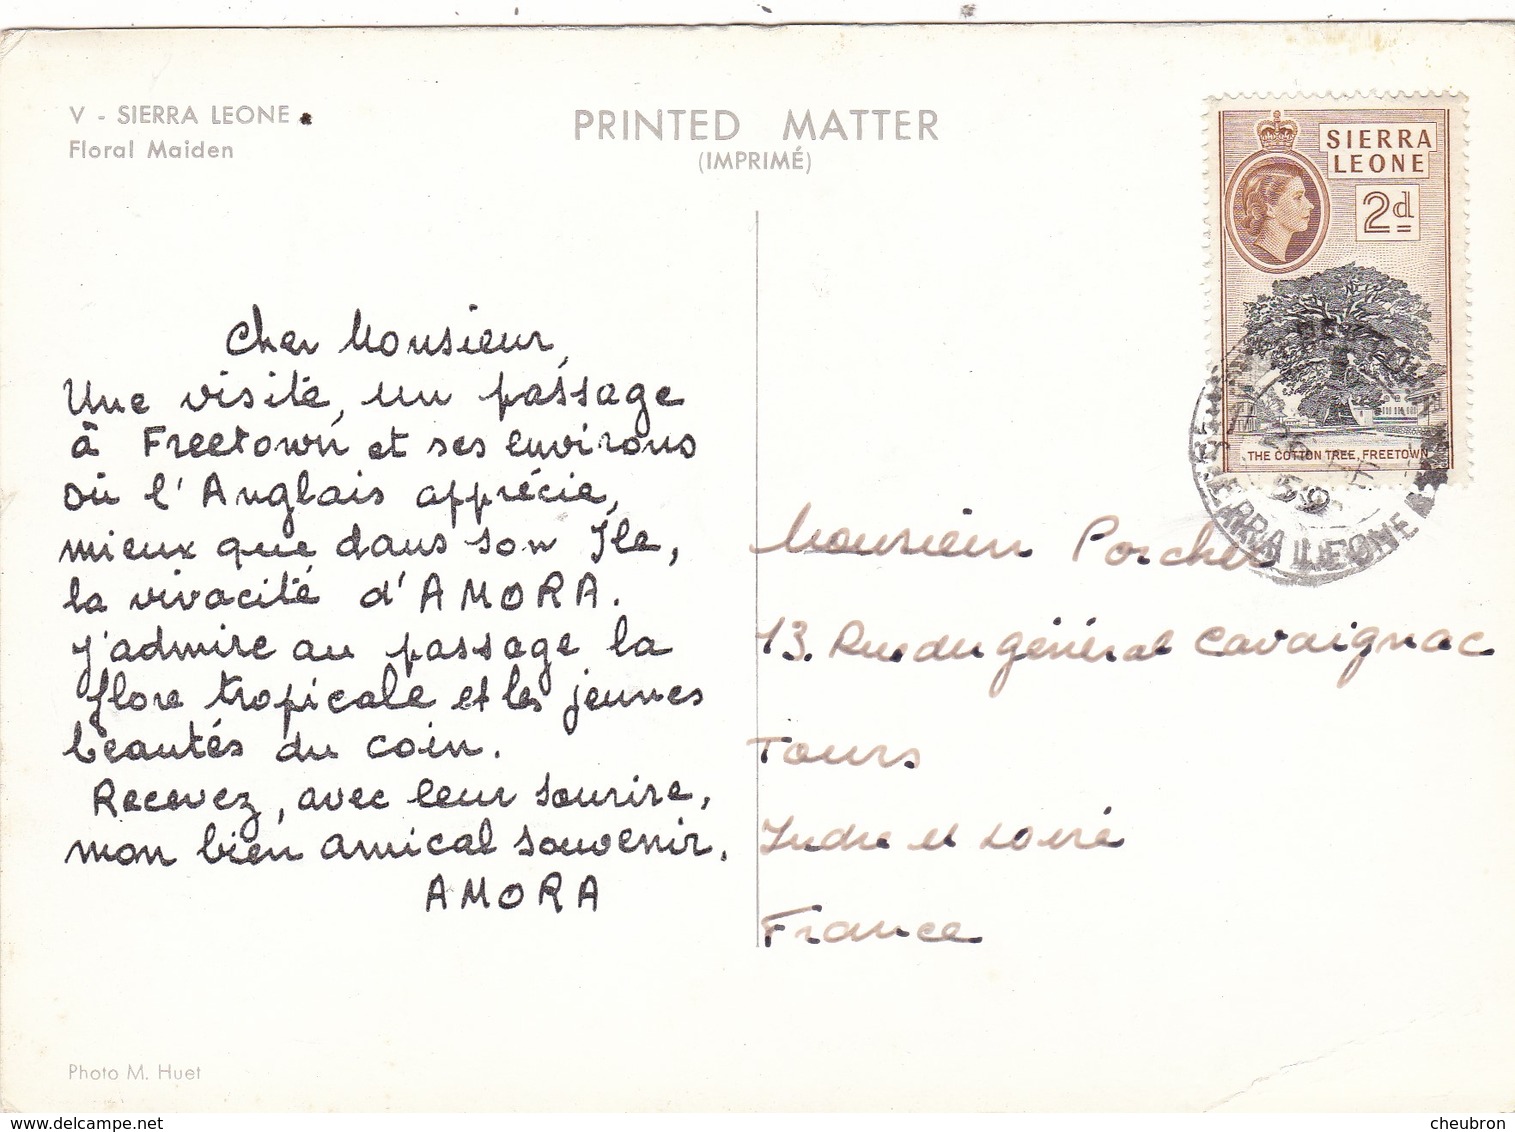 V - SIERRA LEONE.
Floral Maiden
PRINTED MATTER
(IMPRIMÉ)
SIERRA
LEONE
2d
THE COTTON TREE, FREETOWN
SIERRA LEONE
Cher Monsieur,
Une visite, un passage
à Freetown et ses environs
où l'Anglais apprécie,
mieux que dans son Ile,
la vivacité d'AMORA.
J'admire au passage la
flore tropicale et les jeunes
beautés du coin.
Recevez, avec leur sourire,
mon bien amical souvenir.
AMORA
Monsieur Porcher
13. Rue du général Cavaignac
Tours
Indre et Loire
France
Photo M. Huet
www.delcampe.net
cheubron